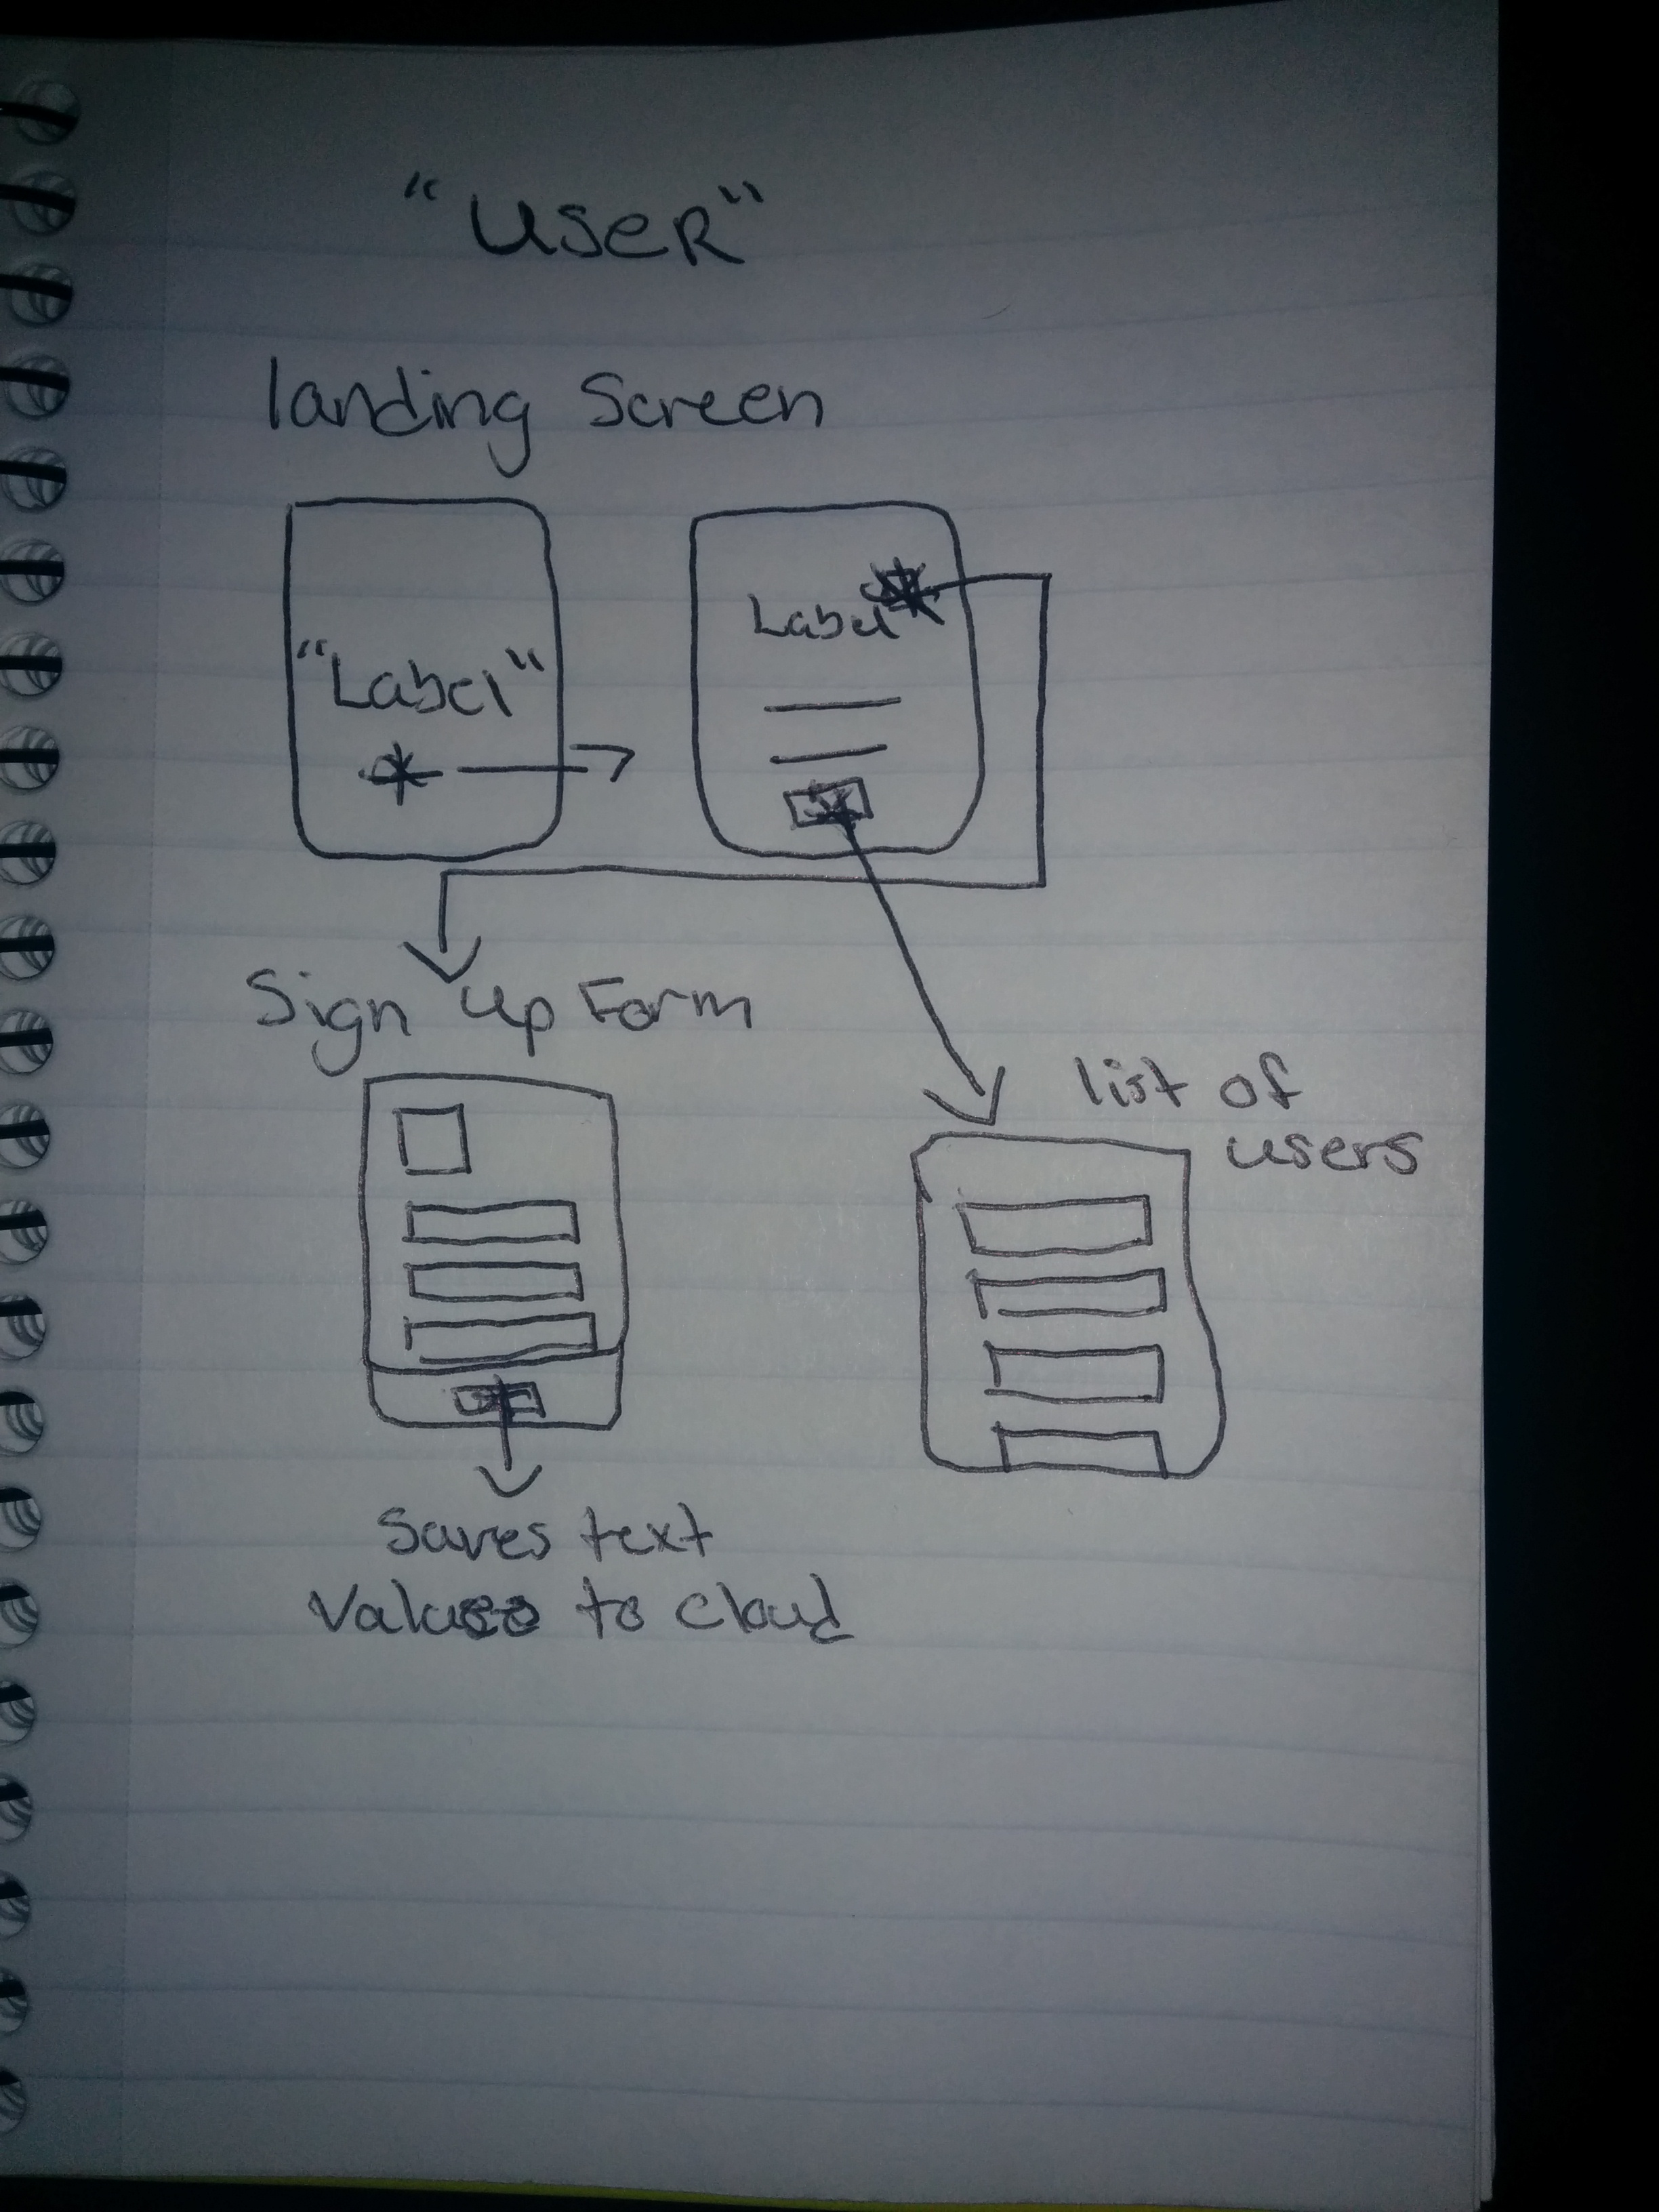 "USER"
landing Screen
"Label"
Label
Sign Up Form
list of
users
Saves text
Values to cloud